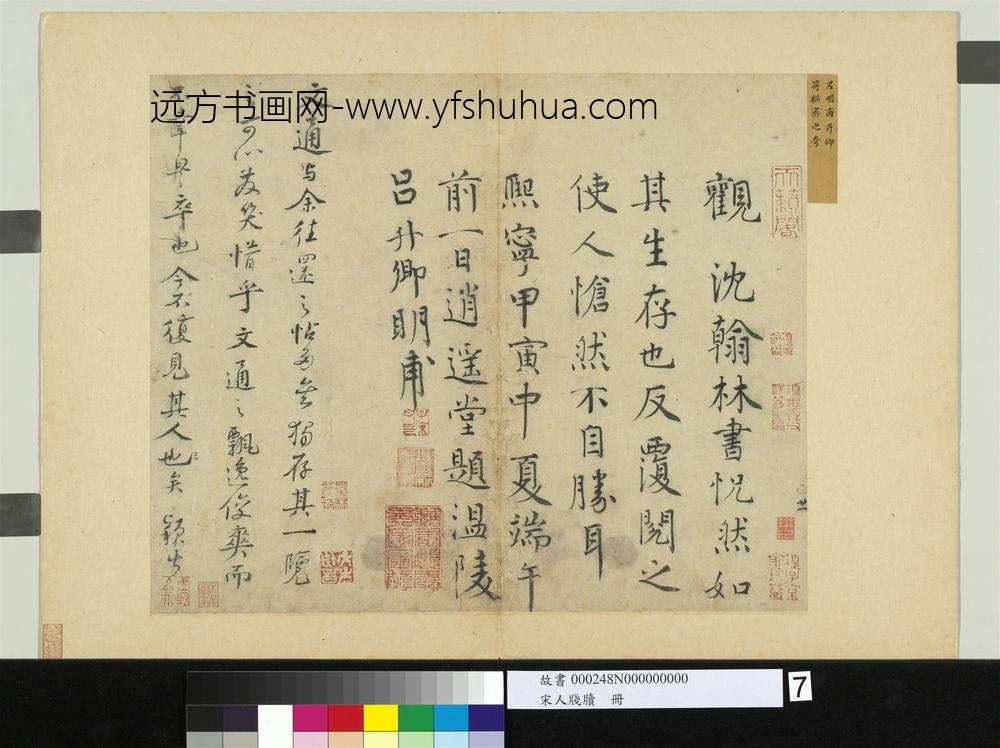 远方书画网-www.yfshuhua.com
呂明甫升卿
觀 沈翰林書怳然如
其生存也反覆閱之
使人愴然不自勝耳
熙寧甲寅中夏端午
前一日逍遥堂題溫陵
呂升卿明甫
文通与余往還之帖
独存其一覽
之可以發笑惜乎文通之飄逸俊爽而
早卒也今不復見其人也矣
故書 000248N000000000
宋人牋牘 冊
7